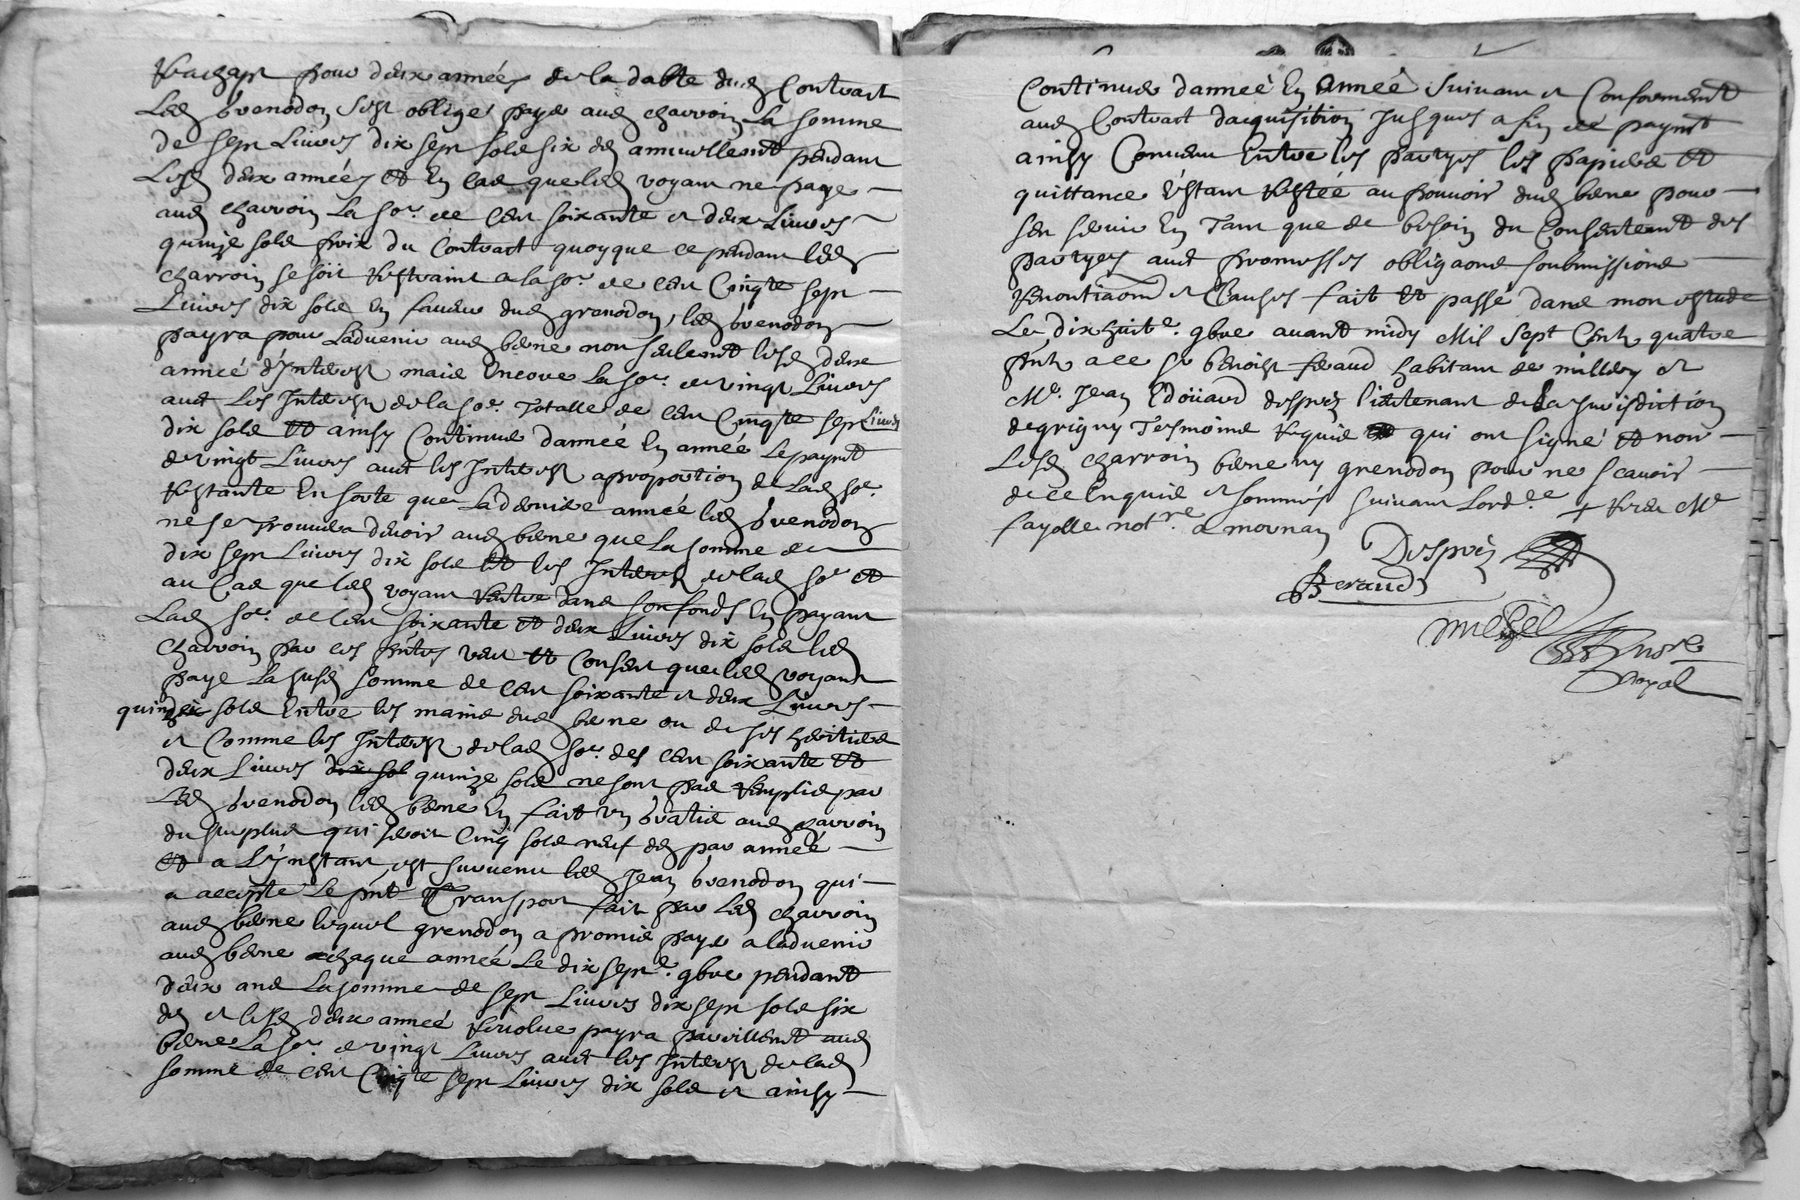 Rachapt pour deux années de la datte dud Contract
Led Grenodon sest obligé paye aud charroin La somme
de sept Livres dix sept sols six den annuellemt pendant
Lesd deux années et En cas que led voyant ne paye
aud charroin La so.e de Cent soixante et deux Livres
quinze sols prix du Contract quoyque ce pendant led
charroin se soit Restraint a la so.e de Cent Cinqte sept
Livres dix sols En faueur dud grenodon, led Grenodon
payra pour Laduenir aud berne non seulemt lesd deux
année d'Interest mais Encore La so.e de vingt Livres
auec Les Interest de la so.e Totalle de Cent Cinqte sept Livres
dix sols et ainsy Continuer dannéé En année Le paymt
de vingt Livres auec les Interest a proportion de Lad so.e
Restante En sorte que La derniere année led Grenodon
ne se trouuera deuoir aud berne que La somme de
dix sept Livres dix sols et les Interest de lad so.e et
au Cas que led voyant Rentre dans son fonds En payant
Lad so.e de Cent soixante et deux Livres dix sols led
charroin par ces pntes veut et Consent que led voyant
paye La susd somme de Cent soixante et deux Livres
quinze sols Entre les mains dud berne ou de ses heritiers
et Comme les Interest de lad so.e des Cent soixante et
deux Livres dix sol quinze sols ne sont pas Remplis par
Led Grenodon led berne En fait un Gratis aud charroin
du surplus qui seroit Cinq sols neuf den par année
et a L'ynstant est suruenu led Jean Grenodon qui
a accepte Le pnt Transport fait par Led charroin
aud berne lequel grenodon a promis paye a laduenir
aud berne chaque année Le dix sept.e 9bre pendant
deux ans La somme de sept Livres dix sept sols six
den et lesd deux année Reuolue payra pareillemt aud
berne La so.e de vingt Livres auec les Interest de lad
somme de Cent Cinqte sept Livres dix sols et ainsy
Continuer dannéé En année suiuant et Conformemt
aud Contract dacquisition Jusques a fin de paymt
ainsy Conuenu Entre les partyes les papiers et
quittance Estant Restéé au pouuoir dud berne pour
sen seruir En Tant que de besoin du Consentemt des
partyes auec promesses obligaons soubmissions
Renontiaons et Clauses fait et passé dans mon estude
Le dix huit.e 9bre auant midy Mil sept Cent quatre
pnt a ce sr benoist feraud habitant de millery et
Me. Jean Edoüard despréz lieutenant de La Jurisdiction
de grigny Tesmoins Requis et qui ont signé et non
Lesd charroin berne ny grenodon pour ne scauoir
de ce Enquis et sommés suiuant Lord.ce + Me
fayolle not.re a mornan
Despréz
Beraud
not.re
Royal